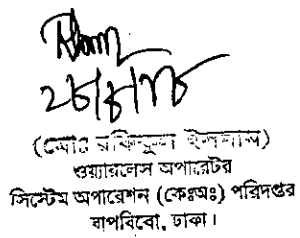 ২৮/৮/১৮
(মোঃ রফিকুল ইসলাম)
ওয়্যারলেস অপারেটর
সিস্টেম অপারেশন (কেঃঅঃ) পরিদপ্তর
বাপবিবো, ঢাকা।